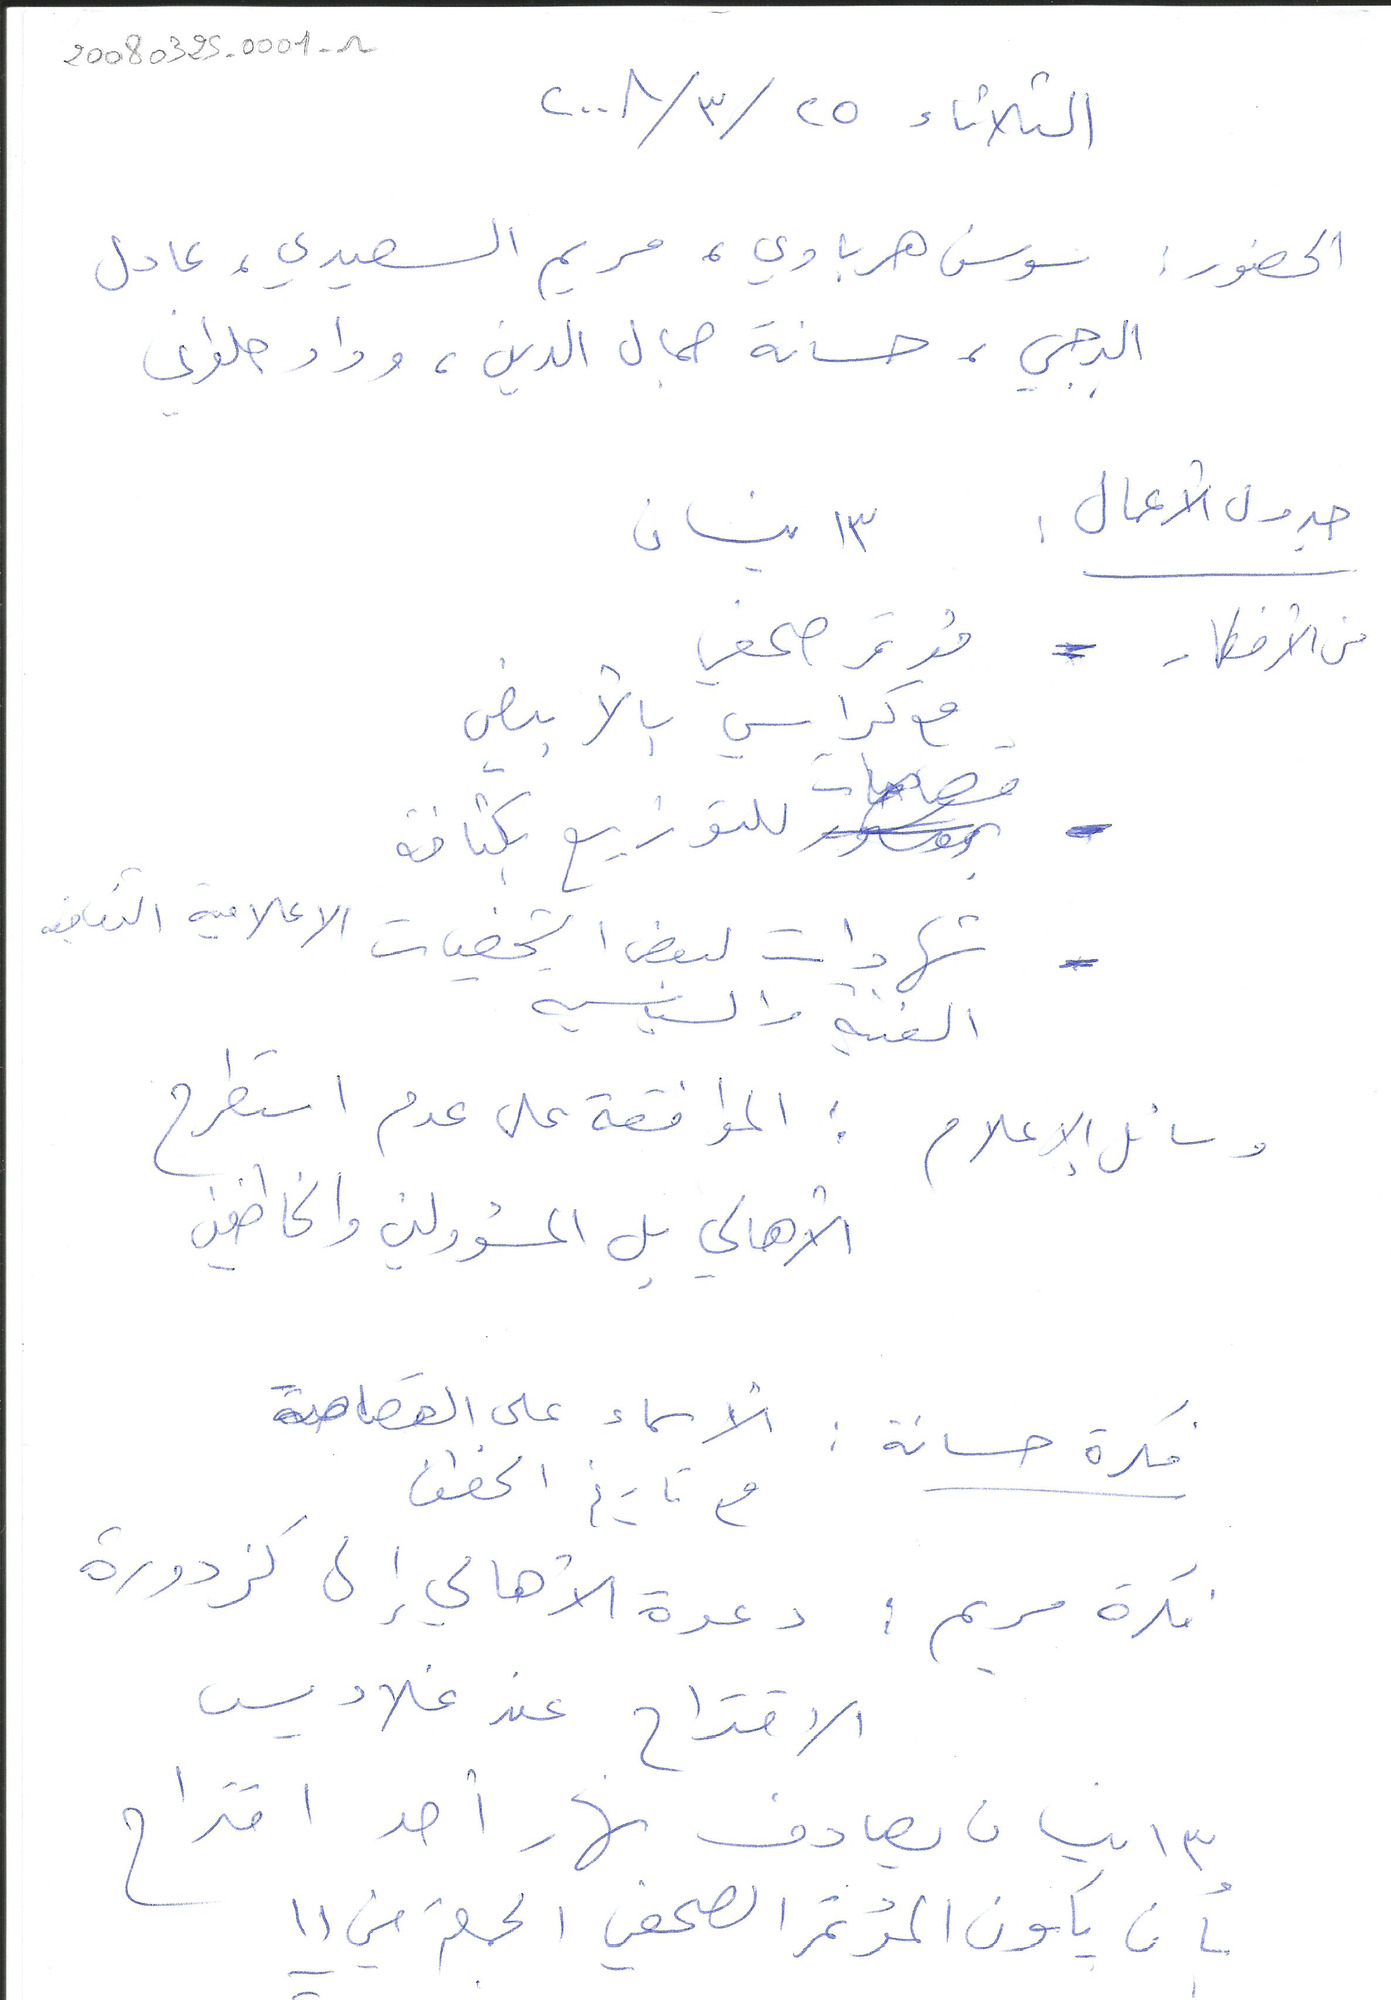 20080325_0001_r
الثلاثاء ٢٥/٣/٢٠٠٨
الحضور: سوسن هرباوي، مريم السعيدي، عادل
البرجي، حسانة جمال الدين، وداد حلواني
جدول الأعمال: ١٣ نيسان
من الأفكار = مؤتمر صحفي
مع كراسي بالأبيض
قصاصات
- للتوزيع بكثافة
- شهادات لبعض الشخصيات الاعلامية الثقافية
الفنية والسياسية
وسائل الإعلام: الموافقة على عدم استطرح
الأهالي بل المسؤولين والخاطفين
فكرة حسانة: الأسماء على القصاصة
مع تاريخ الخطف
فكرة مريم: دعوة الأهالي إلى كزدورة
الاقتراح عند غلاديس
١٣ نيسان يصادف نهار أحد اقتراح
بأن يكون المؤتمر الصحفي الجمعة في ١١